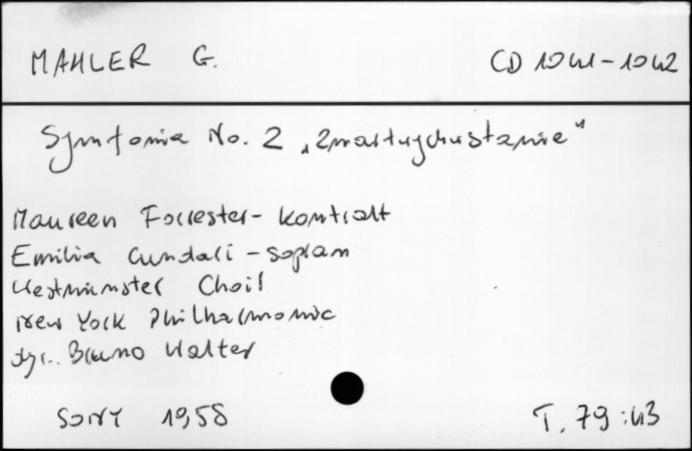 MAHLER G. CD 1041-1042
Symfonia No. 2 „Zmartwychwstanie"
Maureen Forrester - kontralt
Emilia Cundari - sopran
Westminster Choir
New York Philharmonic
dyr. Bruno Walter
SONY 1958 T. 79:43